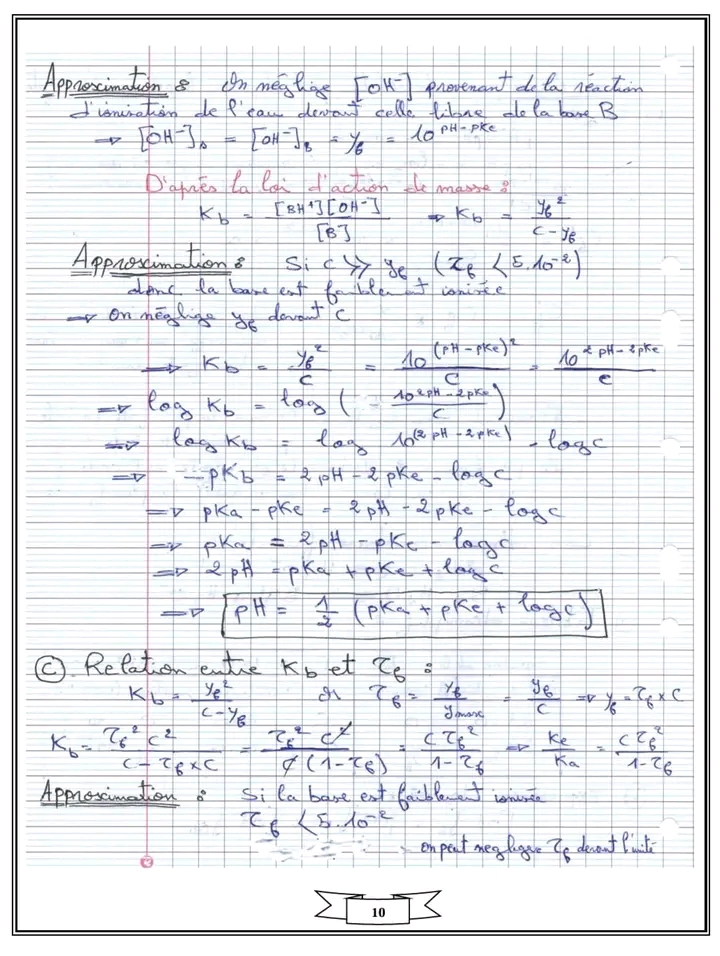 Approximation : On néglige [OH⁻] provenant de la réaction
d'ionisation de l'eau devant celle libre de la base B
⇒ [OH⁻]_B = [OH⁻]_B = y_f = 10^(pH-pKe)
D'après la loi d'action de masse :
K_b = [BH⁺][OH⁻] / [B] ⇒ K_b = y_f² / (c - y_f)
Approximation : Si c >> y_f (τ_f < 5.10⁻²)
donc la base est faiblement ionisée
⇒ On néglige y_f devant C
⇒ K_b = y_f² / C = 10^(pH-pKe)² / C = 10^(2pH-2pKe) / C
⇒ log K_b = log (10^(2pH-2pKe) / C)
⇒ log K_b = log 10^(2pH-2pKe) - log c
⇒ -pK_b = 2pH - 2pKe - log c
⇒ pKa - pKe = 2pH - 2pKe - log c
⇒ pKa = 2pH - pKe - log c
⇒ 2pH = pKa + pKe + log c
⇒ pH = 1/2 (pKa + pKe + log c)
Ⓒ Relation entre K_b et τ_f :
K_b = y_f² / (c - y_f) or τ_f = y_f / y_max = y_f / C ⇒ y_f = τ_f × C
K_b = τ_f² c² / (c - τ_f × C) = τ_f² c² / (c(1-τ_f)) = c τ_f² / (1-τ_f) ⇒ Ke / Ka = c τ_f² / (1-τ_f)
Approximation : Si la base est faiblement ionisée
τ_f < 5.10⁻²
on peut negligee τ_f devant l'unité
10